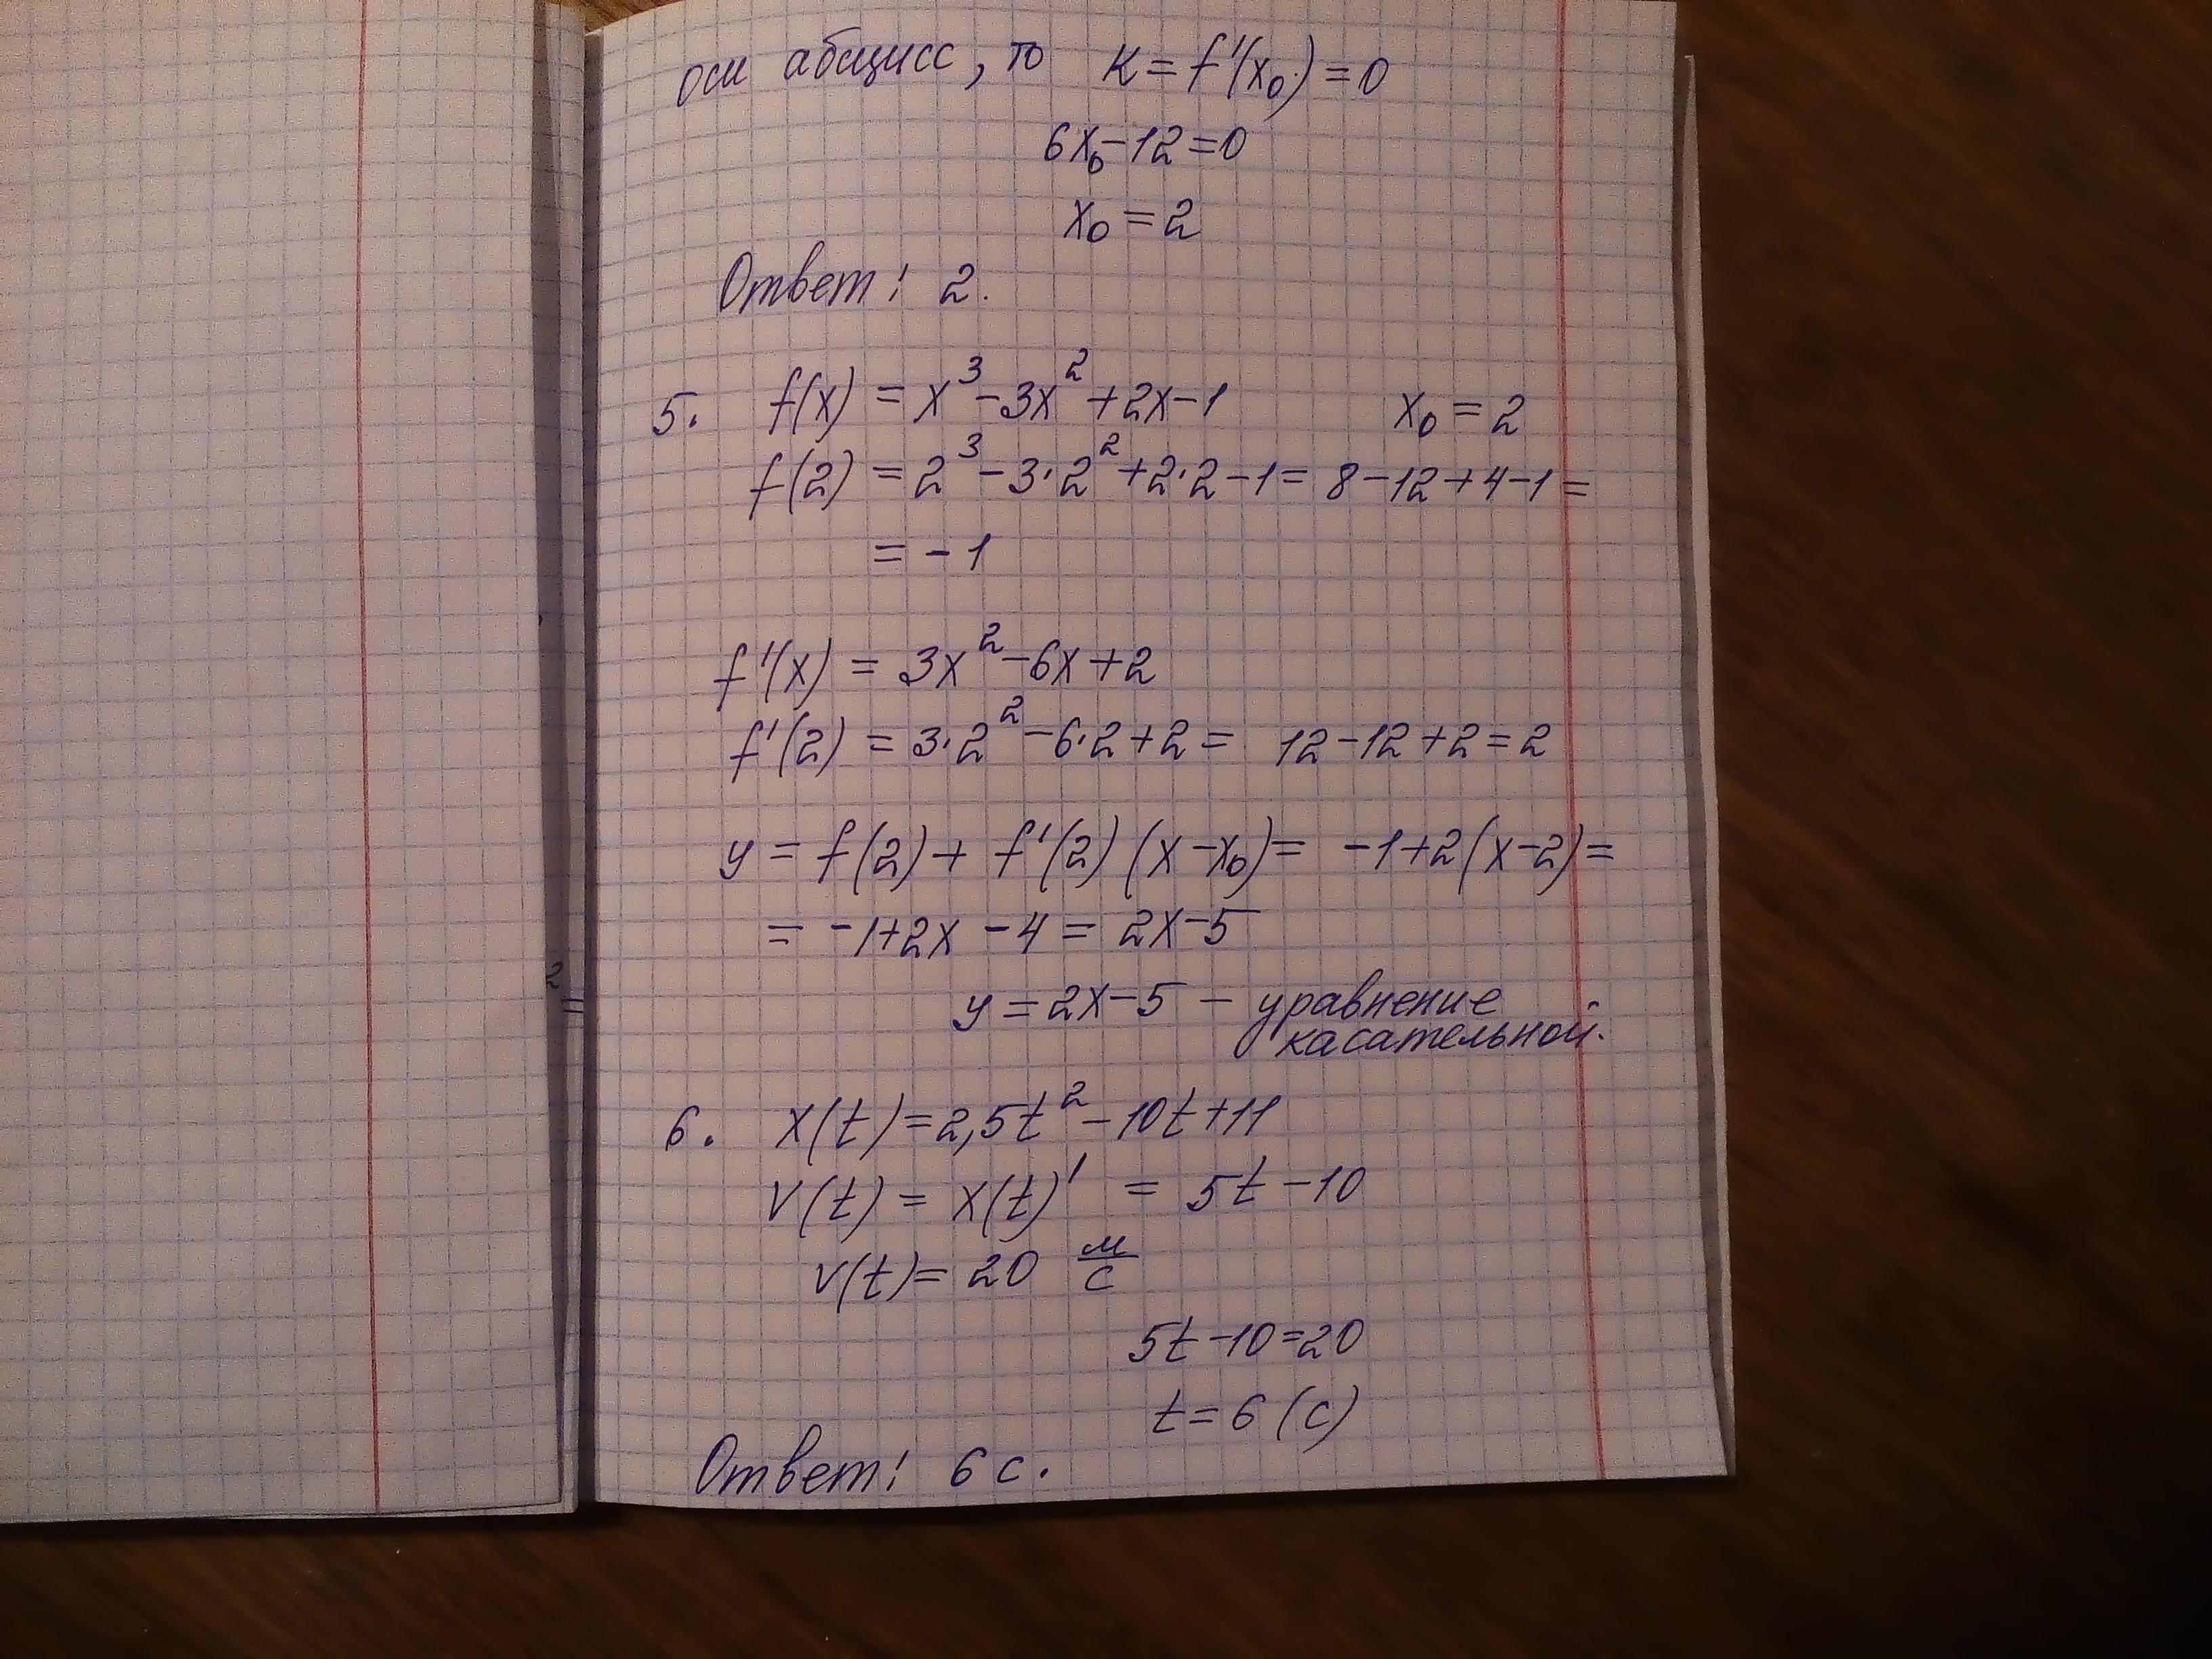 оси абсцисс, то K = f'(x₀) = 0
6x₀ - 12 = 0
x₀ = 2
Ответ: 2.
5. f(x) = x³ - 3x² + 2x - 1 x₀ = 2
f(2) = 2³ - 3·2² + 2·2 - 1 = 8 - 12 + 4 - 1 =
= -1
f'(x) = 3x² - 6x + 2
f'(2) = 3·2² - 6·2 + 2 = 12 - 12 + 2 = 2
y = f(2) + f'(2)(x - x₀) = -1 + 2(x - 2) =
= -1 + 2x - 4 = 2x - 5
y = 2x - 5 - уравнение
касательной.
6. x(t) = 2,5t² - 10t + 11
v(t) = x(t)' = 5t - 10
v(t) = 20 м/с
5t - 10 = 20
t = 6 (с)
Ответ: 6 с.